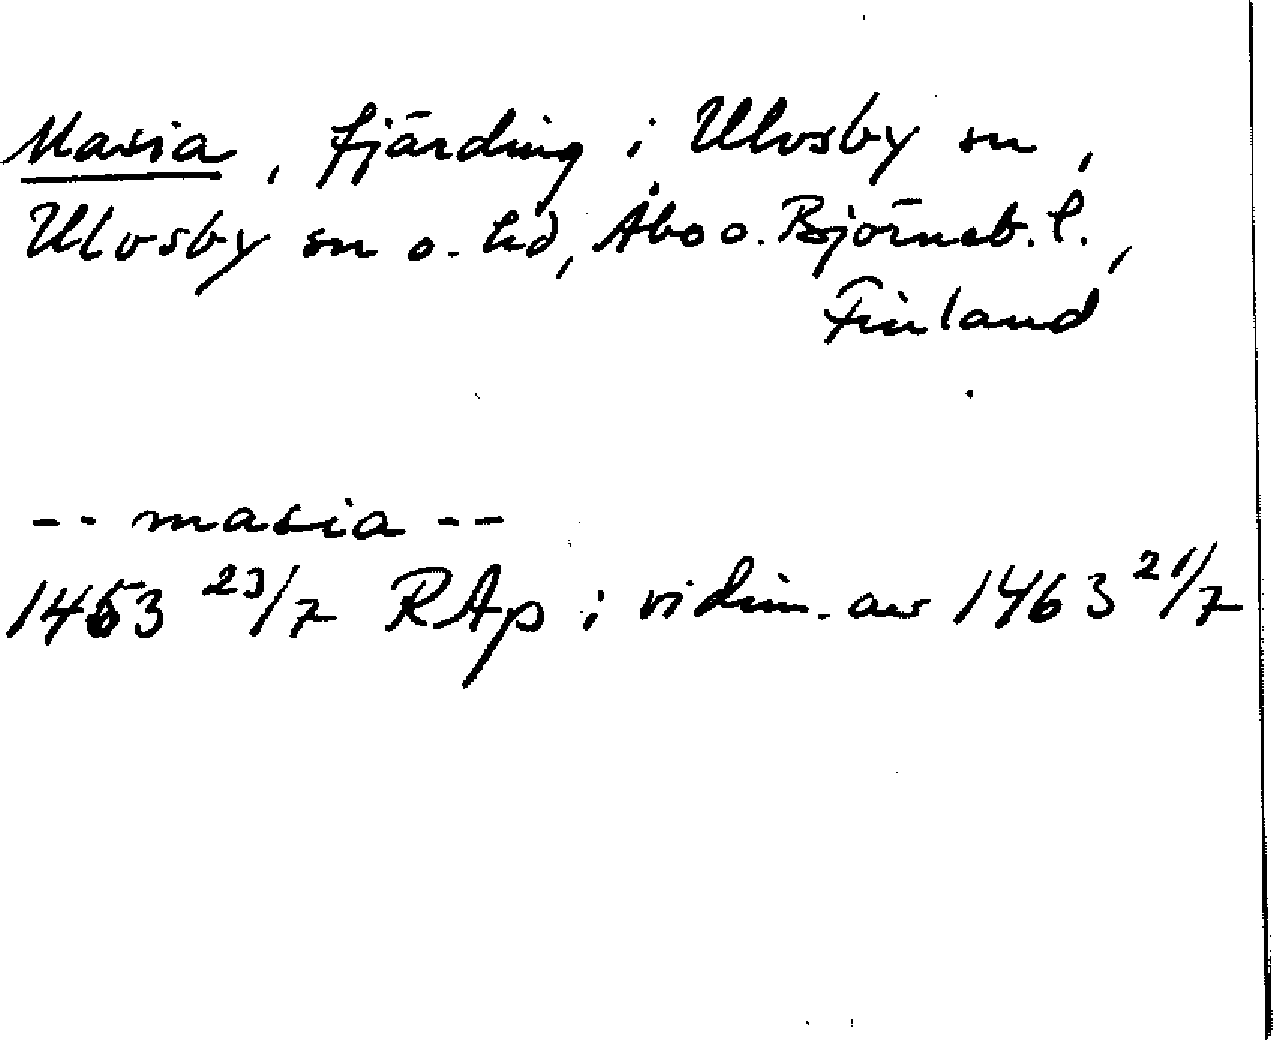 Masia, fjärding i Ulvsby sn,
Ulvsby sn o. hd, Åbo o. Björneb. l.,
Finland
-- masia --
1453 23/7 RAp i vidim. av 1463 21/7